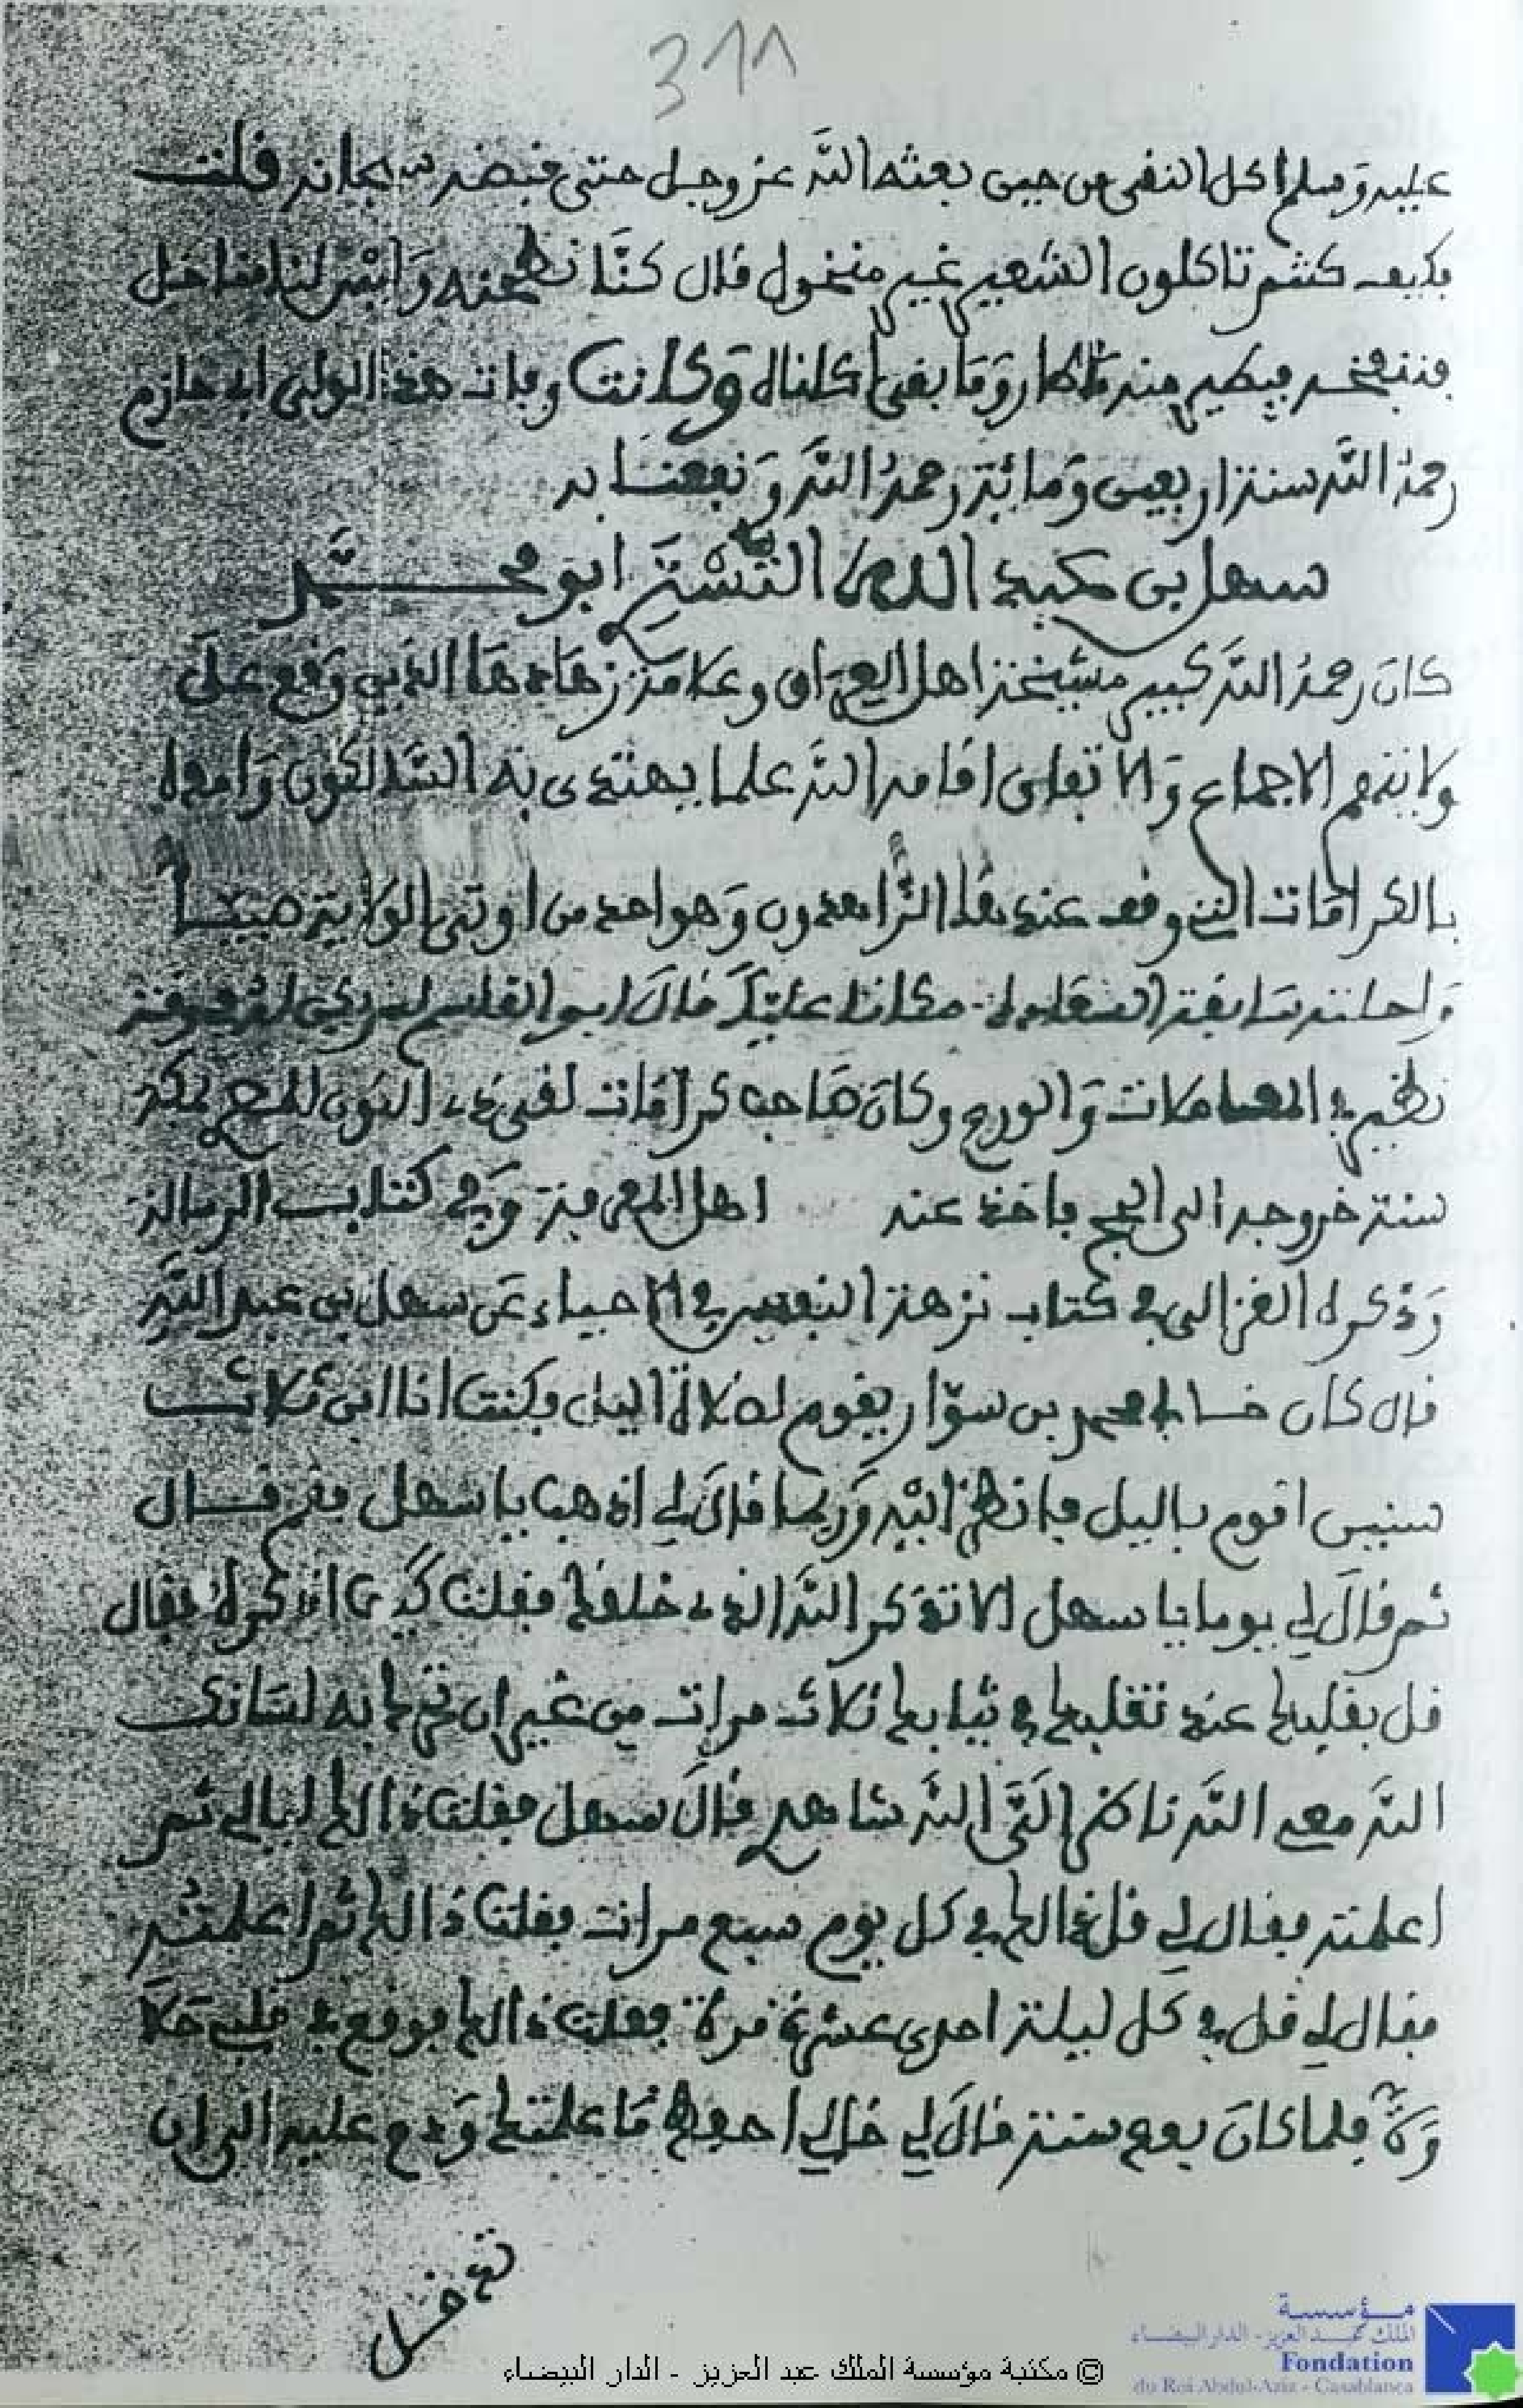 311
عليه وسلم اكل النقي من حين بعثه الله عز وجل حتى قبضه سبحانه قلت
فكيف كنتم تاكلون الشعير غير منخول قال كنا نطحنه
فننفخه فيطير منه ما طار وما بقي اكلناه وكانت وفات هذا الولي ابي حازم
رحمه الله سنة اربعين ومائة رحمه الله ونفعنا به
سهل بن عبد الله التستري ابو محمد
كان رحمه الله كبير مشيخة اهل العراق وعلامة زهادها الذين وقع على
ولايتهم الاجماع والاتفاق اقامه الله علما يهتدي به السالكون وامده
بالكرامات التي وقف عندها الزاهدون وهو واحد من اوتي الولاية صبيا
واحلته سابقة السعادة مكانا عليا قال ابو القاسم لم يكن له في وقته
نظير في المعاملات والورع وكان صاحب كرامات لقي ذي النون المصري بمكة
سنة خروجه الى الحج فاخذ عنه اهل المعرفة وفي كتاب الرسالة
وذكره الغزالي في كتاب نزهة النفس في الاحياء عن سهل بن عبد الله
قال كان خالي محمد بن سوار يقوم لصلاة اليل وكنت انا ابن ثلاث
سنين اقوم باليل فانظر اليه وربما قال لي اذهب يا سهل فنم قال
ثم قال لي يوما يا سهل الا تذكر الله الذي خلقك فقلت كيف اذكره فقال
قل بقلبك عند تقلبك في ثيابك ثلاث مرات من غير ان تحرك به لسانك
الله معي الله ناظر الي الله شاهدي قال سهل فقلت ذالك ليالي ثم
اعلمته فقال لي قل ذالك في كل يوم سبع مرات فقلت ذالك ثم اعلمته
فقال لي قل في كل ليلة احدى عشرة مرة فقلت ذالك فوقع في قلبي حلا
وة فلما كان بعد سنة قال لي خالي احفظ ما علمتك ودم عليه الى ان
تدخل
© مكتبة مؤسسة الملك عبد العزيز - الدار البيضاء
مؤسسة
الملك عبد العزيز - الدار البيضاء
Fondation
du Roi Abdul-Aziz - Casablanca